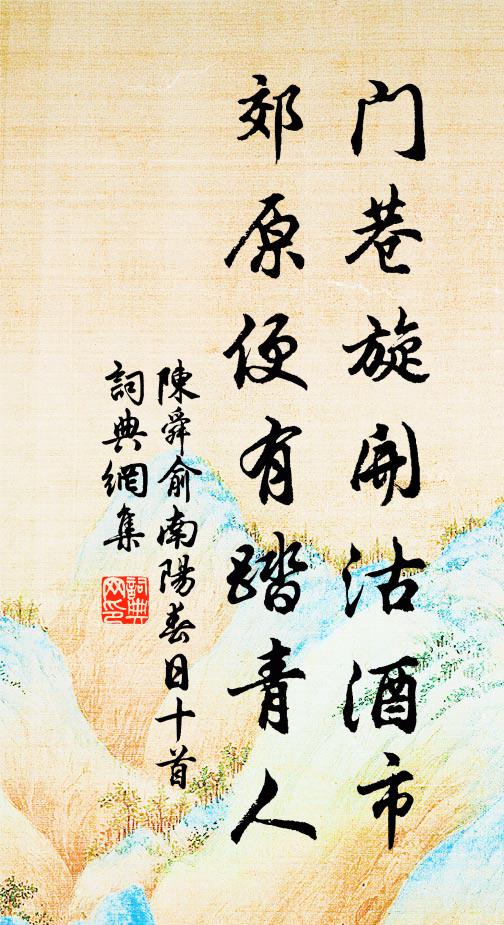 门巷旋开沽酒市
郊原便有踏青人
陳舜俞南陽春日十首
詞典網集
詞典网印